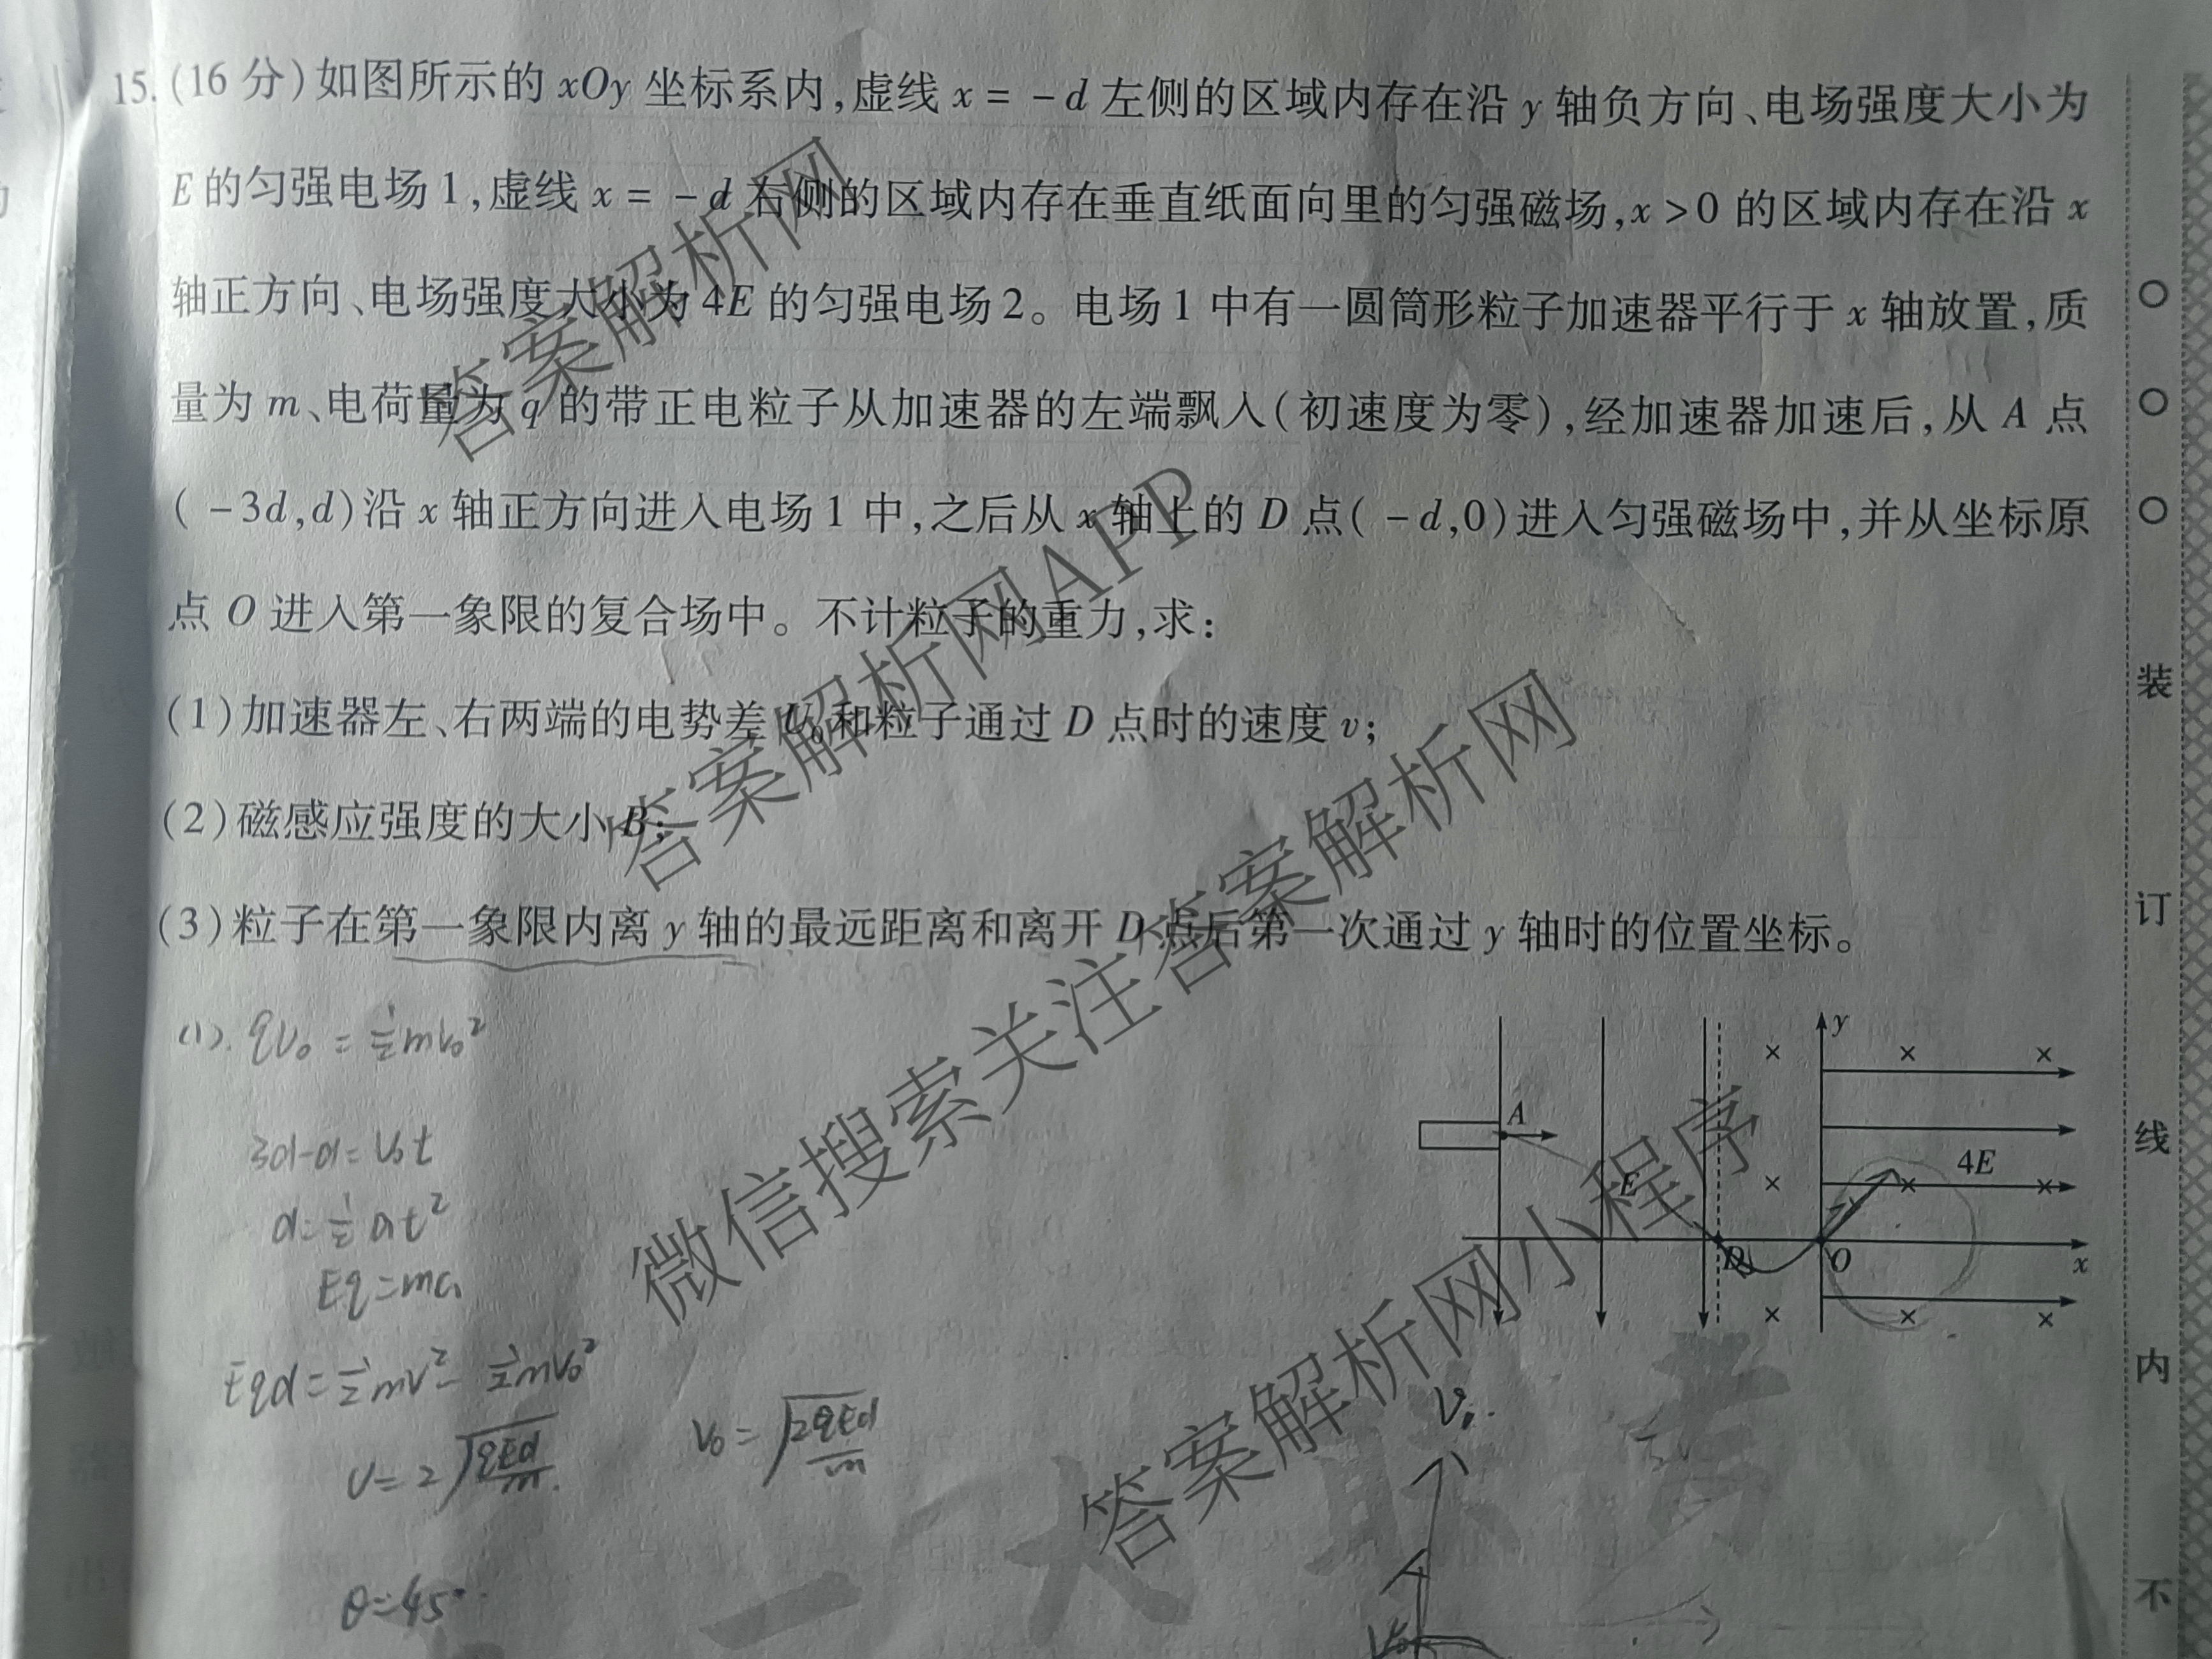 15. (16 分)如图所示的 xOy 坐标系内,虚线 x = -d 左侧的区域内存在沿 y 轴负方向、电场强度大小为
E 的匀强电场 1,虚线 x = -d 右侧的区域内存在垂直纸面向里的匀强磁场,x >0 的区域内存在沿 x
轴正方向、电场强度大小为 4E 的匀强电场 2。电场 1 中有一圆筒形粒子加速器平行于 x 轴放置,质
量为 m、电荷量为 q 的带正电粒子从加速器的左端飘入(初速度为零),经加速器加速后,从 A 点
( -3d,d)沿 x 轴正方向进入电场 1 中,之后从 x 轴上的 D 点( -d,0)进入匀强磁场中,并从坐标原
点 O 进入第一象限的复合场中。不计粒子的重力,求:
(1)加速器左、右两端的电势差 U₀ 和粒子通过 D 点时的速度 v;
(2)磁感应强度的大小 B;
(3)粒子在第一象限内离 y 轴的最远距离和离开 D 点后第一次通过 y 轴时的位置坐标。
(1). qU₀ = ½mv₀²
3d-d = v₀t
d = ½at²
Eq = ma
Eqd = ½mv² - ½mv₀²
v = 2√(qEd/m)
v₀ = √(2qEd/m)
θ=45°
y
A
4E
E
D
O
x
V₁
装
订
线
内
不
答案解析网
答案解析网APP
微信搜索关注答案解析网
答案解析网小程序